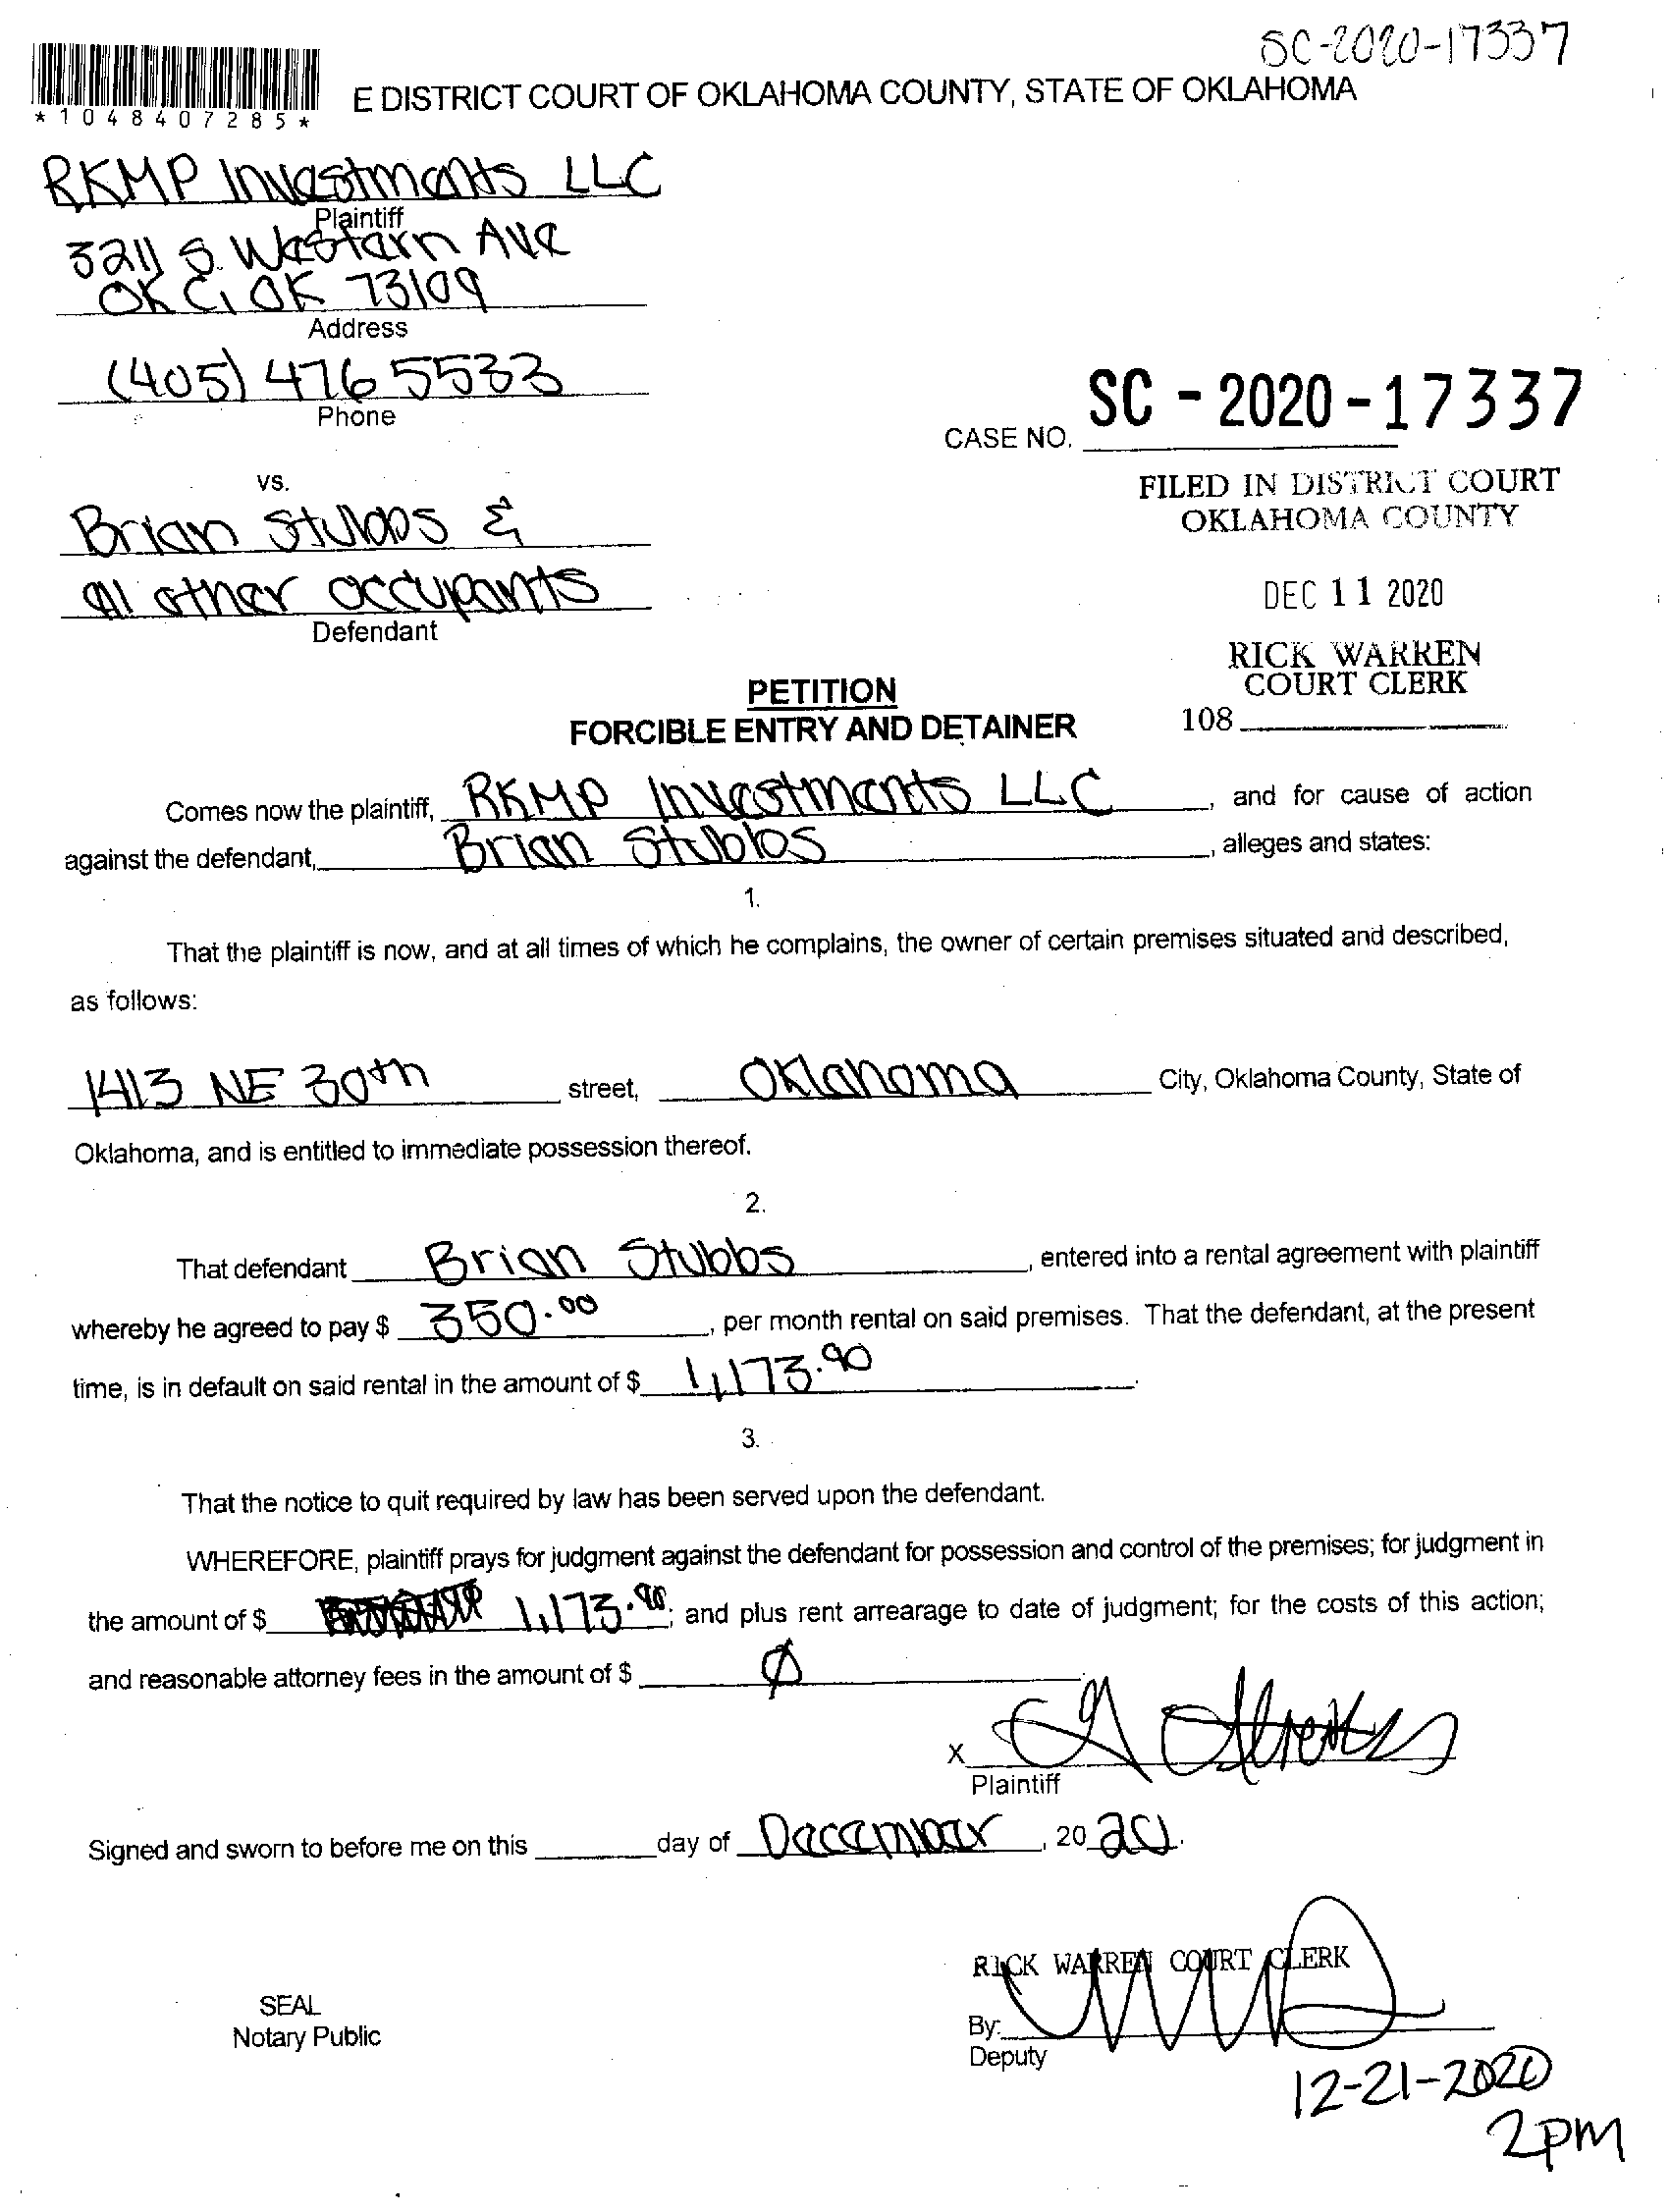 SC-2020-17337
*1048407285*
E DISTRICT COURT OF OKLAHOMA COUNTY, STATE OF OKLAHOMA
RKMP Investments LLC
Plaintiff
3211 S. Western Ave
OKC, OK 73109
Address
(405) 476 5533
Phone
CASE NO. SC - 2020 - 17337
vs.
FILED IN DISTRICT COURT
OKLAHOMA COUNTY
Brian Stubbs &
all other occupants
Defendant
DEC 11 2020
RICK WARREN
COURT CLERK
108
PETITION
FORCIBLE ENTRY AND DETAINER
Comes now the plaintiff, RKMP Investments LLC, and for cause of action
against the defendant, Brian Stubbs, alleges and states:
1.
That the plaintiff is now, and at all times of which he complains, the owner of certain premises situated and described,
as follows:
1413 NE 30th street, Oklahoma City, Oklahoma County, State of
Oklahoma, and is entitled to immediate possession thereof.
2.
That defendant Brian Stubbs, entered into a rental agreement with plaintiff
whereby he agreed to pay $ 350.00, per month rental on said premises. That the defendant, at the present
time, is in default on said rental in the amount of $ 1,173.90.
3.
That the notice to quit required by law has been served upon the defendant.
WHEREFORE, plaintiff prays for judgment against the defendant for possession and control of the premises; for judgment in
the amount of $ 1,173.90; and plus rent arrearage to date of judgment; for the costs of this action;
and reasonable attorney fees in the amount of $ Ø
X
Plaintiff
Signed and sworn to before me on this day of December, 20 20.
RICK WARREN COURT CLERK
SEAL
Notary Public
By:
Deputy
12-21-2020
2pm